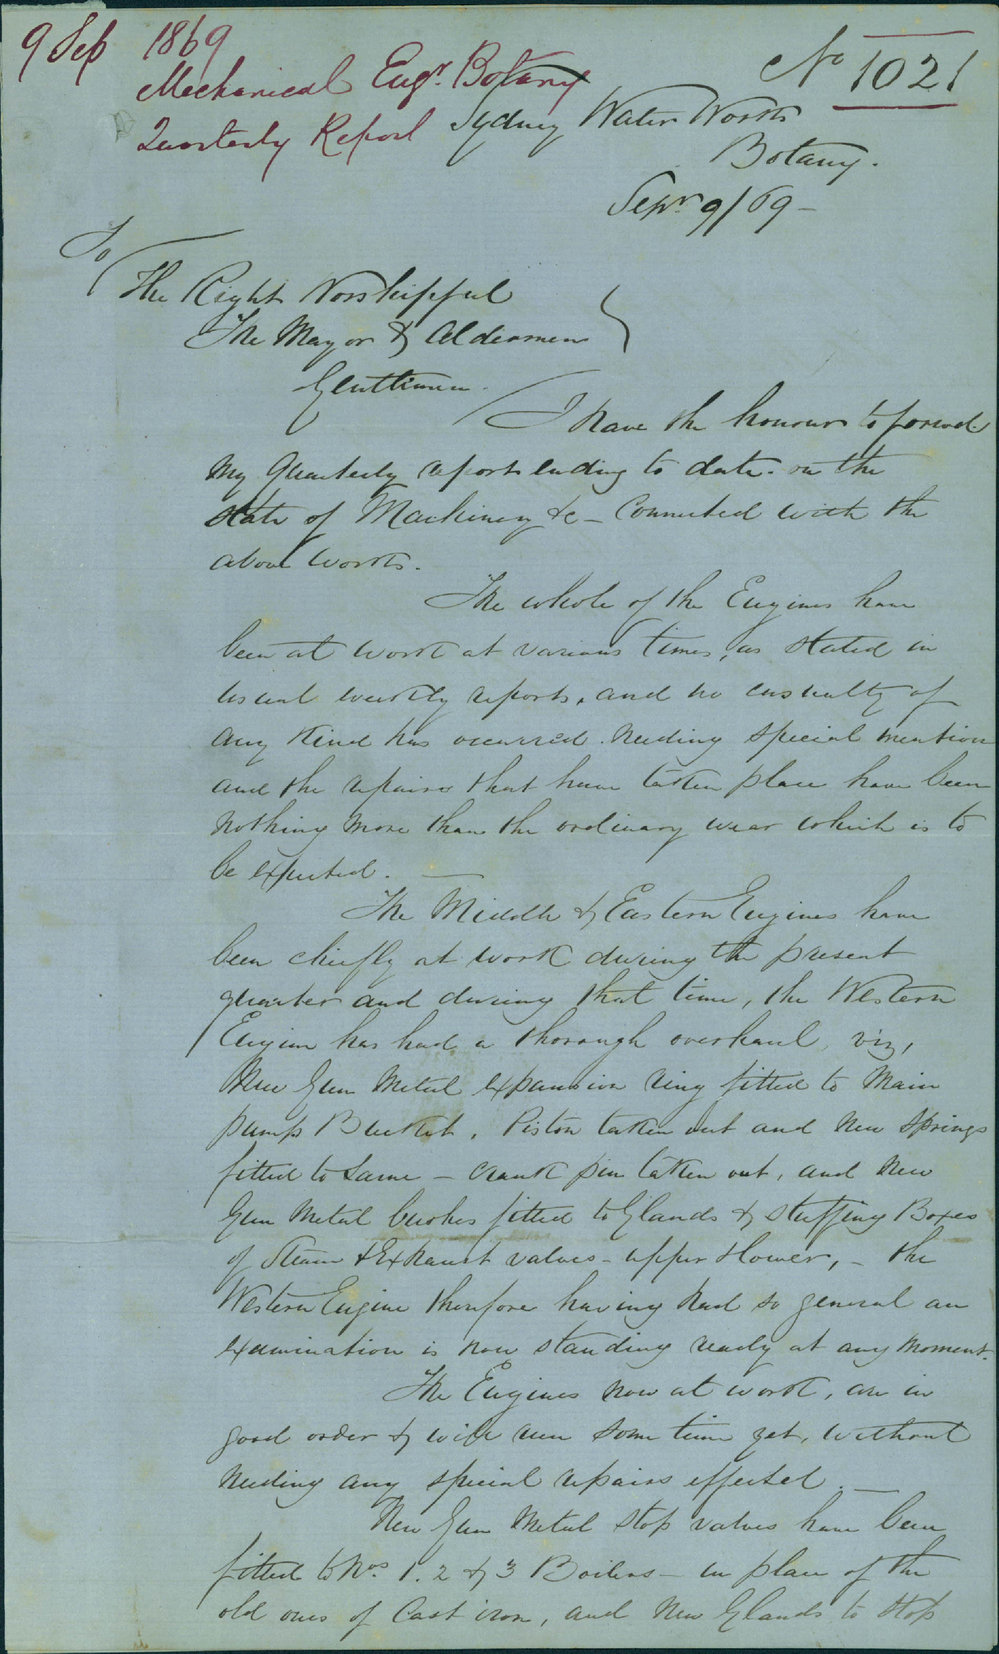 9 Sep 1869
Mechanical Engr. Botany
Quarterly Report
No 1021
Sydney Water Works
Botany.
Sepr 9/69 -
To
The Right Worshipful
The Mayor & Aldermen
Gentlemen.
I have the honour to forward
my Quarterly report ending to date. on the
state of Machinery &c - Connected with the
above works.
The whole of the Engines have
been at work at various times, as stated in
usual weekly reports, and no casualty of
any kind has occurred. needing special mention
and the repairs that have taken place have been
nothing more than the ordinary wear which is to
be expected. -
The Middle & Eastern Engines have
been chiefly at work during the present
quarter and during that time, the Western
Engine has had a thorough overhaul, viz,
New Gun Metal expansion ring fitted to Main
pump Bucket, Piston taken out and New Springs
fitted to same - Crank pin taken out, and New
Gun Metal bushes fitted to Glands & stuffing Boxes
of Steam & Exhaust valves - upper & lower, - the
Western Engine therefore having had so general an
examination is now standing ready at any moment.
The Engines now at work, are in
good order & will run some time yet, without
needing any special repairs effected. -
New Gun Metal stop valves have been
fitted to Nos 1. 2 & 3 Boilers - in place of the
old ones of Cast iron, and New Glands to stop